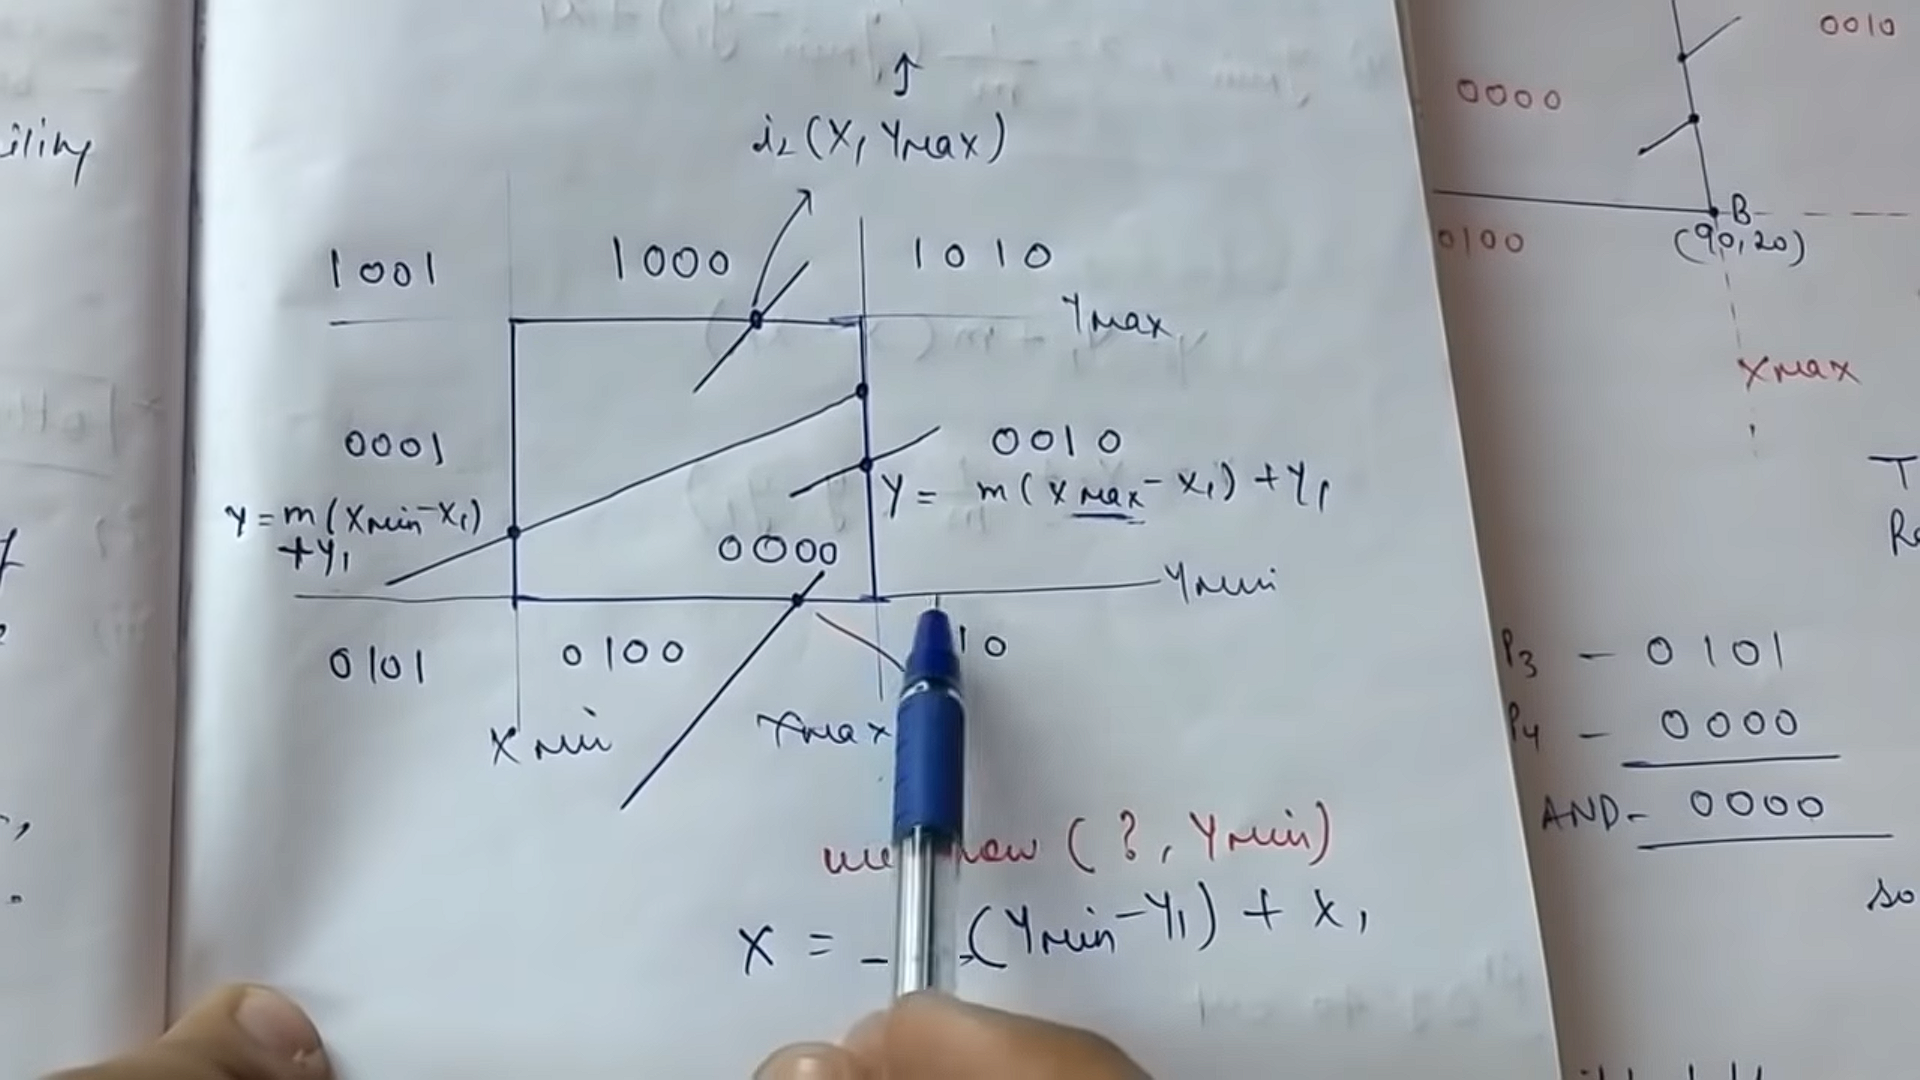 i₂ (X, Ymax)
1001 1000 1010
Ymax
0001 0010
Y = m (Xmin - X₁)
+ Y₁
Y = m ( Xmax - X₁) + Y₁
0000
Ymin
0101 0100 10
Xmin Xmax
( ?, Ymin)
X = (Ymin - Y₁) + X₁
0010
0000
B
0100
(90,20)
Xmax
P3 - 0101
P4 - 0000
AND - 0000
so